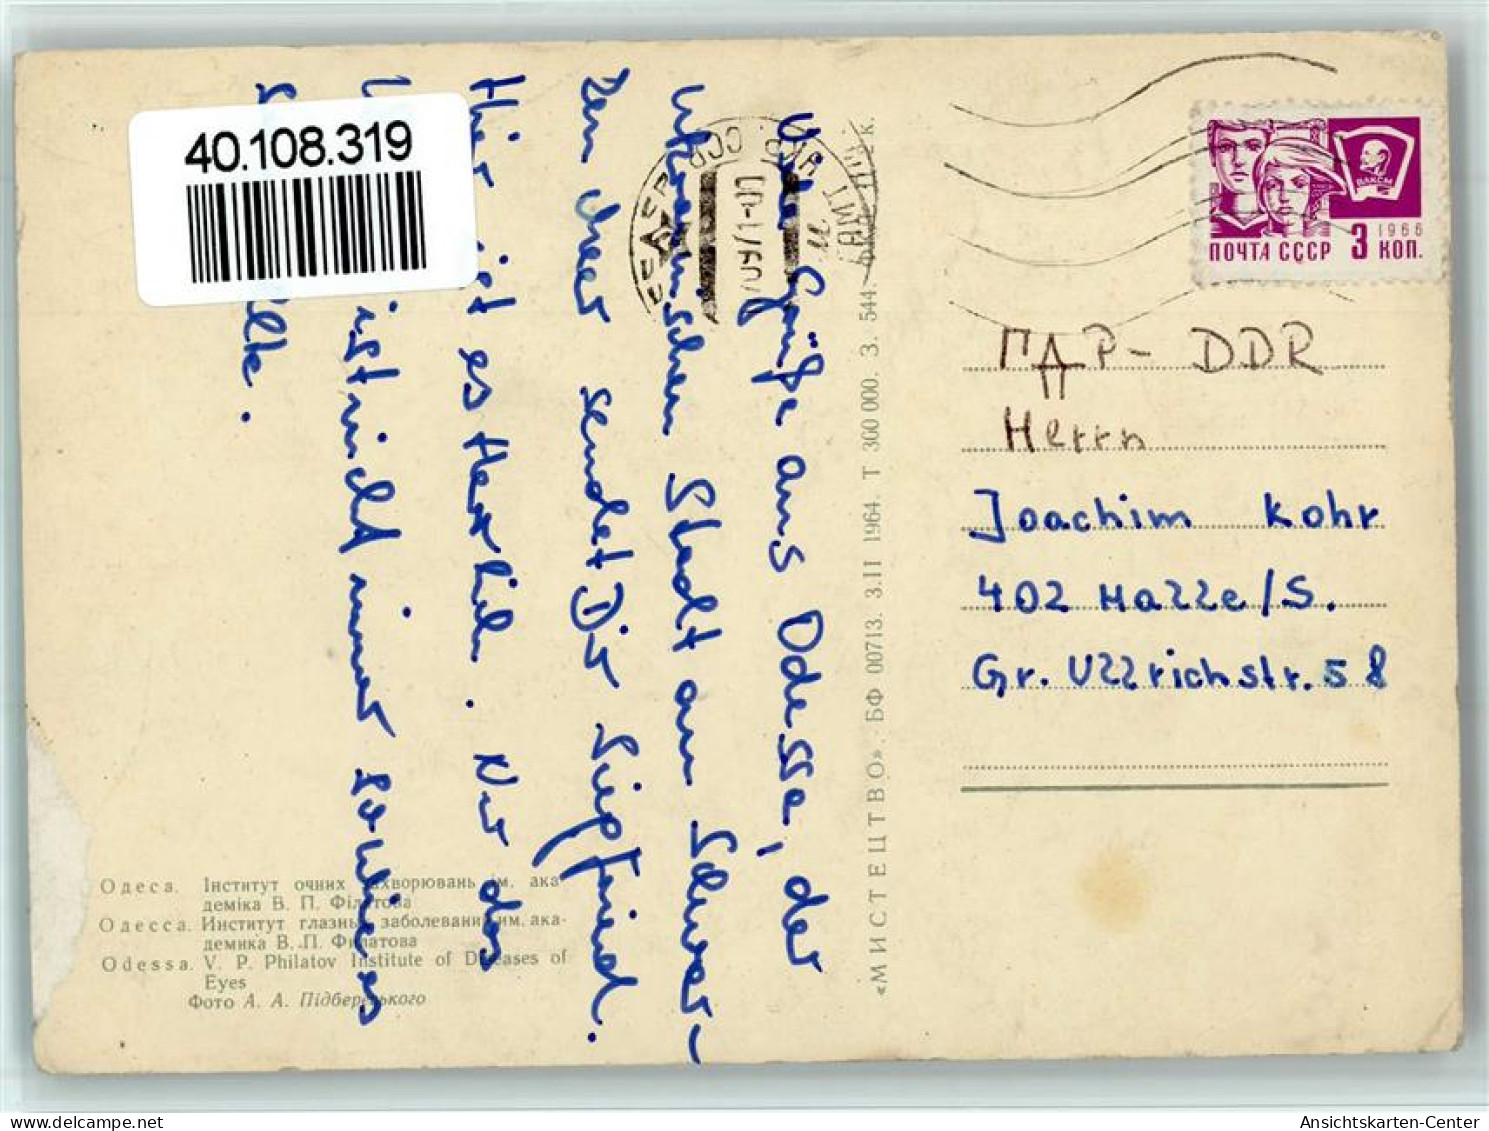 40.108.319
Viele Grüße aus Odessa, der
Ukrainischen Stadt am Schwar-
zen Meer sendet Dir Siegfried.
Hier ist es Herrlich. Nur das
ist nicht immer
ПОЧТА СССР 3 КОП.
1966
ВЛКСМ
ГДР - DDR
Herrn
Joachim Kohr
402 Halle/S.
Gr. Ullrichstr. 58
«МИСТЕЦТВО». БФ 00713. 3.II 1964. Т 300 000. З. 544. к.
Одеса. Інститут очних захворювань ім. ака-
деміка В. П. Філатова
Одесса. Институт глазных заболеваний им. ака-
демика В. П. Филатова
Odessa. V. P. Philatov Institute of Diseases of
Eyes
Фото А. А. Підберезького
delcampe.net
Ansichtskarten-Center